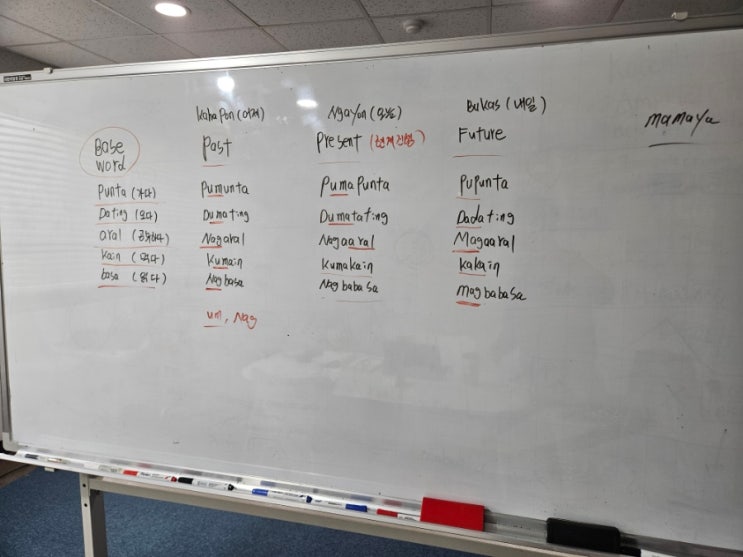 Kahapon (어제) Ngayon (오늘) Bukas (내일)
mamaya
Base word Past Present (현재진행) Future
Punta (가다) Pumunta Pumapunta Pupunta
Dating (오다) Dumating Dumatating Dadating
aral (공부하다) Nagaral Nagaaral Magaaral
kain (먹다) Kumain Kumakain kakain
basa (읽다) Nagbasa Nagbabasa Magbabasa
um, Nag